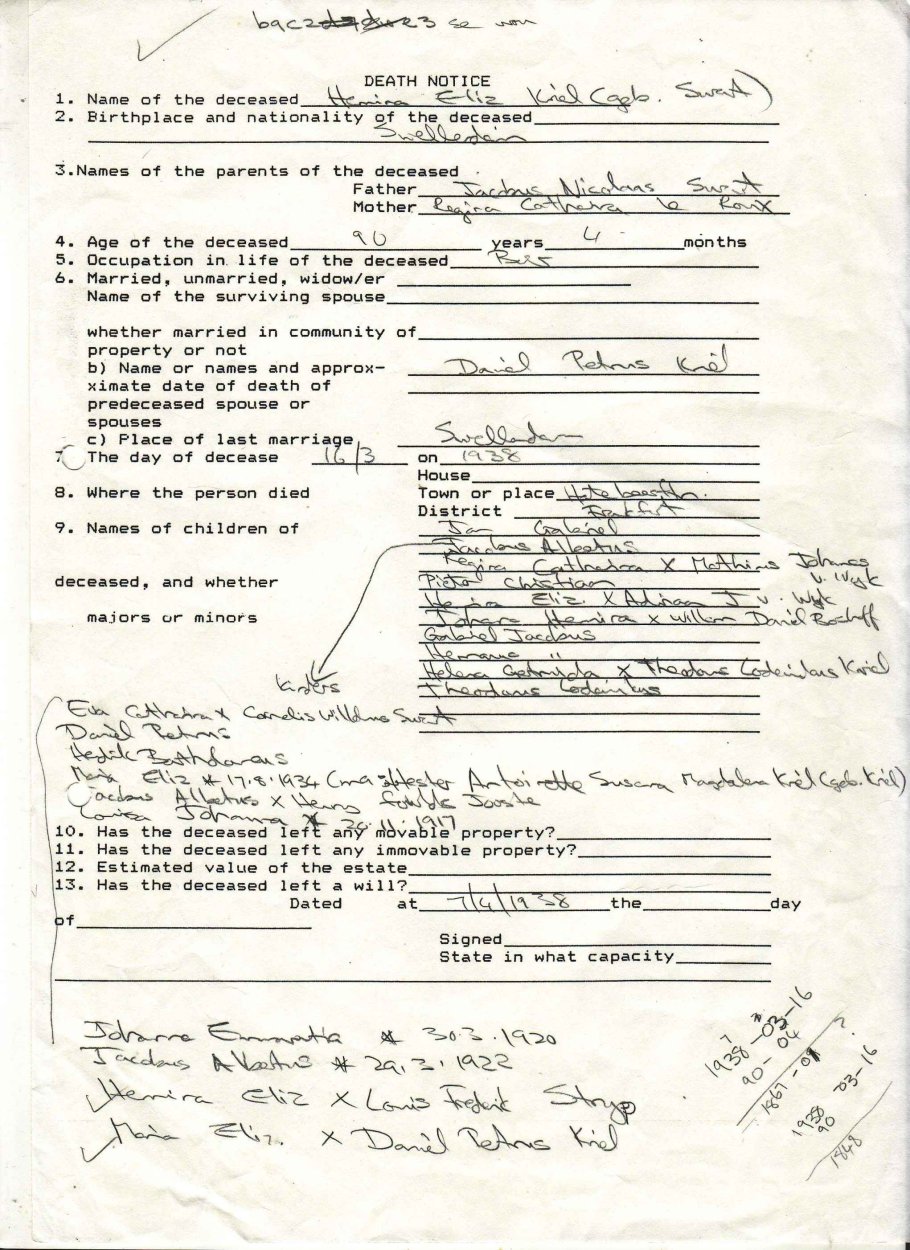 b9c2 23 se
DEATH NOTICE
1. Name of the deceased Hemina Eliz Kriel (geb. Swart)
2. Birthplace and nationality of the deceased
Swellendam
3.Names of the parents of the deceased
Father Jacobus Nicolaas Swart
Mother Regina Catharina le Roux
4. Age of the deceased 90 years 4 months
5. Occupation in life of the deceased
6. Married, unmarried, widow/er
Name of the surviving spouse
whether married in community of
property or not
b) Name or names and approx- Daniel Petrus Kriel
ximate date of death of
predeceased spouse or
spouses
c) Place of last marriage Swellendam
7. The day of decease 16/3 on 1938
House
8. Where the person died Town or place
District Frankfort
9. Names of children of Jan Gabriel
Jacobus Albertus
Regina Catharina X Mathinus Johannes v. Wyk
deceased, and whether Pieter Christian
Hemina Eliz. X Adriaan J v. Wyk
majors or minors Johanna Hemina x Willem Daniel Boshoff
Gabriel Jacobus
Hermanus "
Helena Gertruida x Theodorus Lodewikus Kriel
Kinders Theodorus Lodewikus
Eva Catharina x Cornelis Willelmus Swart
Daniel Petrus
Hendrik
Maria Eliz * 17.8.1934 (ma Hester Antoinette Susara Magdalena Kriel (geb. Kriel)
Jacobus Albertus x Henry Fowlds Jooste
Louisa Johanna * 20.11.1917
10. Has the deceased left any movable property?
11. Has the deceased left any immovable property?
12. Estimated value of the estate
13. Has the deceased left a will?
Dated at 7/4/1938 the day
of
Signed
State in what capacity
Johanna * 30.3.1920
Jacobus Albertus * 29.3.1922
Hemina Eliz X Louis Frederik Stryp
Maria Eliz. X Daniel Petrus Kriel
1938-03-16
90-04
1867-
?
1938 03-16
90
1848